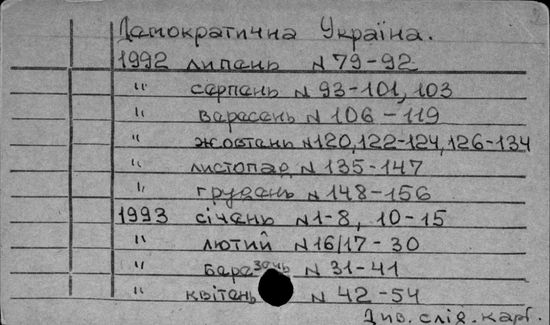 Демократична Україна.
1992 липень N 79-92
" серпень N 93-101, 103
" вересень N 106-119
" жовтень N 120, 122-124, 126-134
" листопад N 135-147
" грудень N 148-156
1993 січень N 1-8, 10-15
" лютий N 16/17-30
" березень N 31-41
" квітень N 42-54
Див. слід. карт.